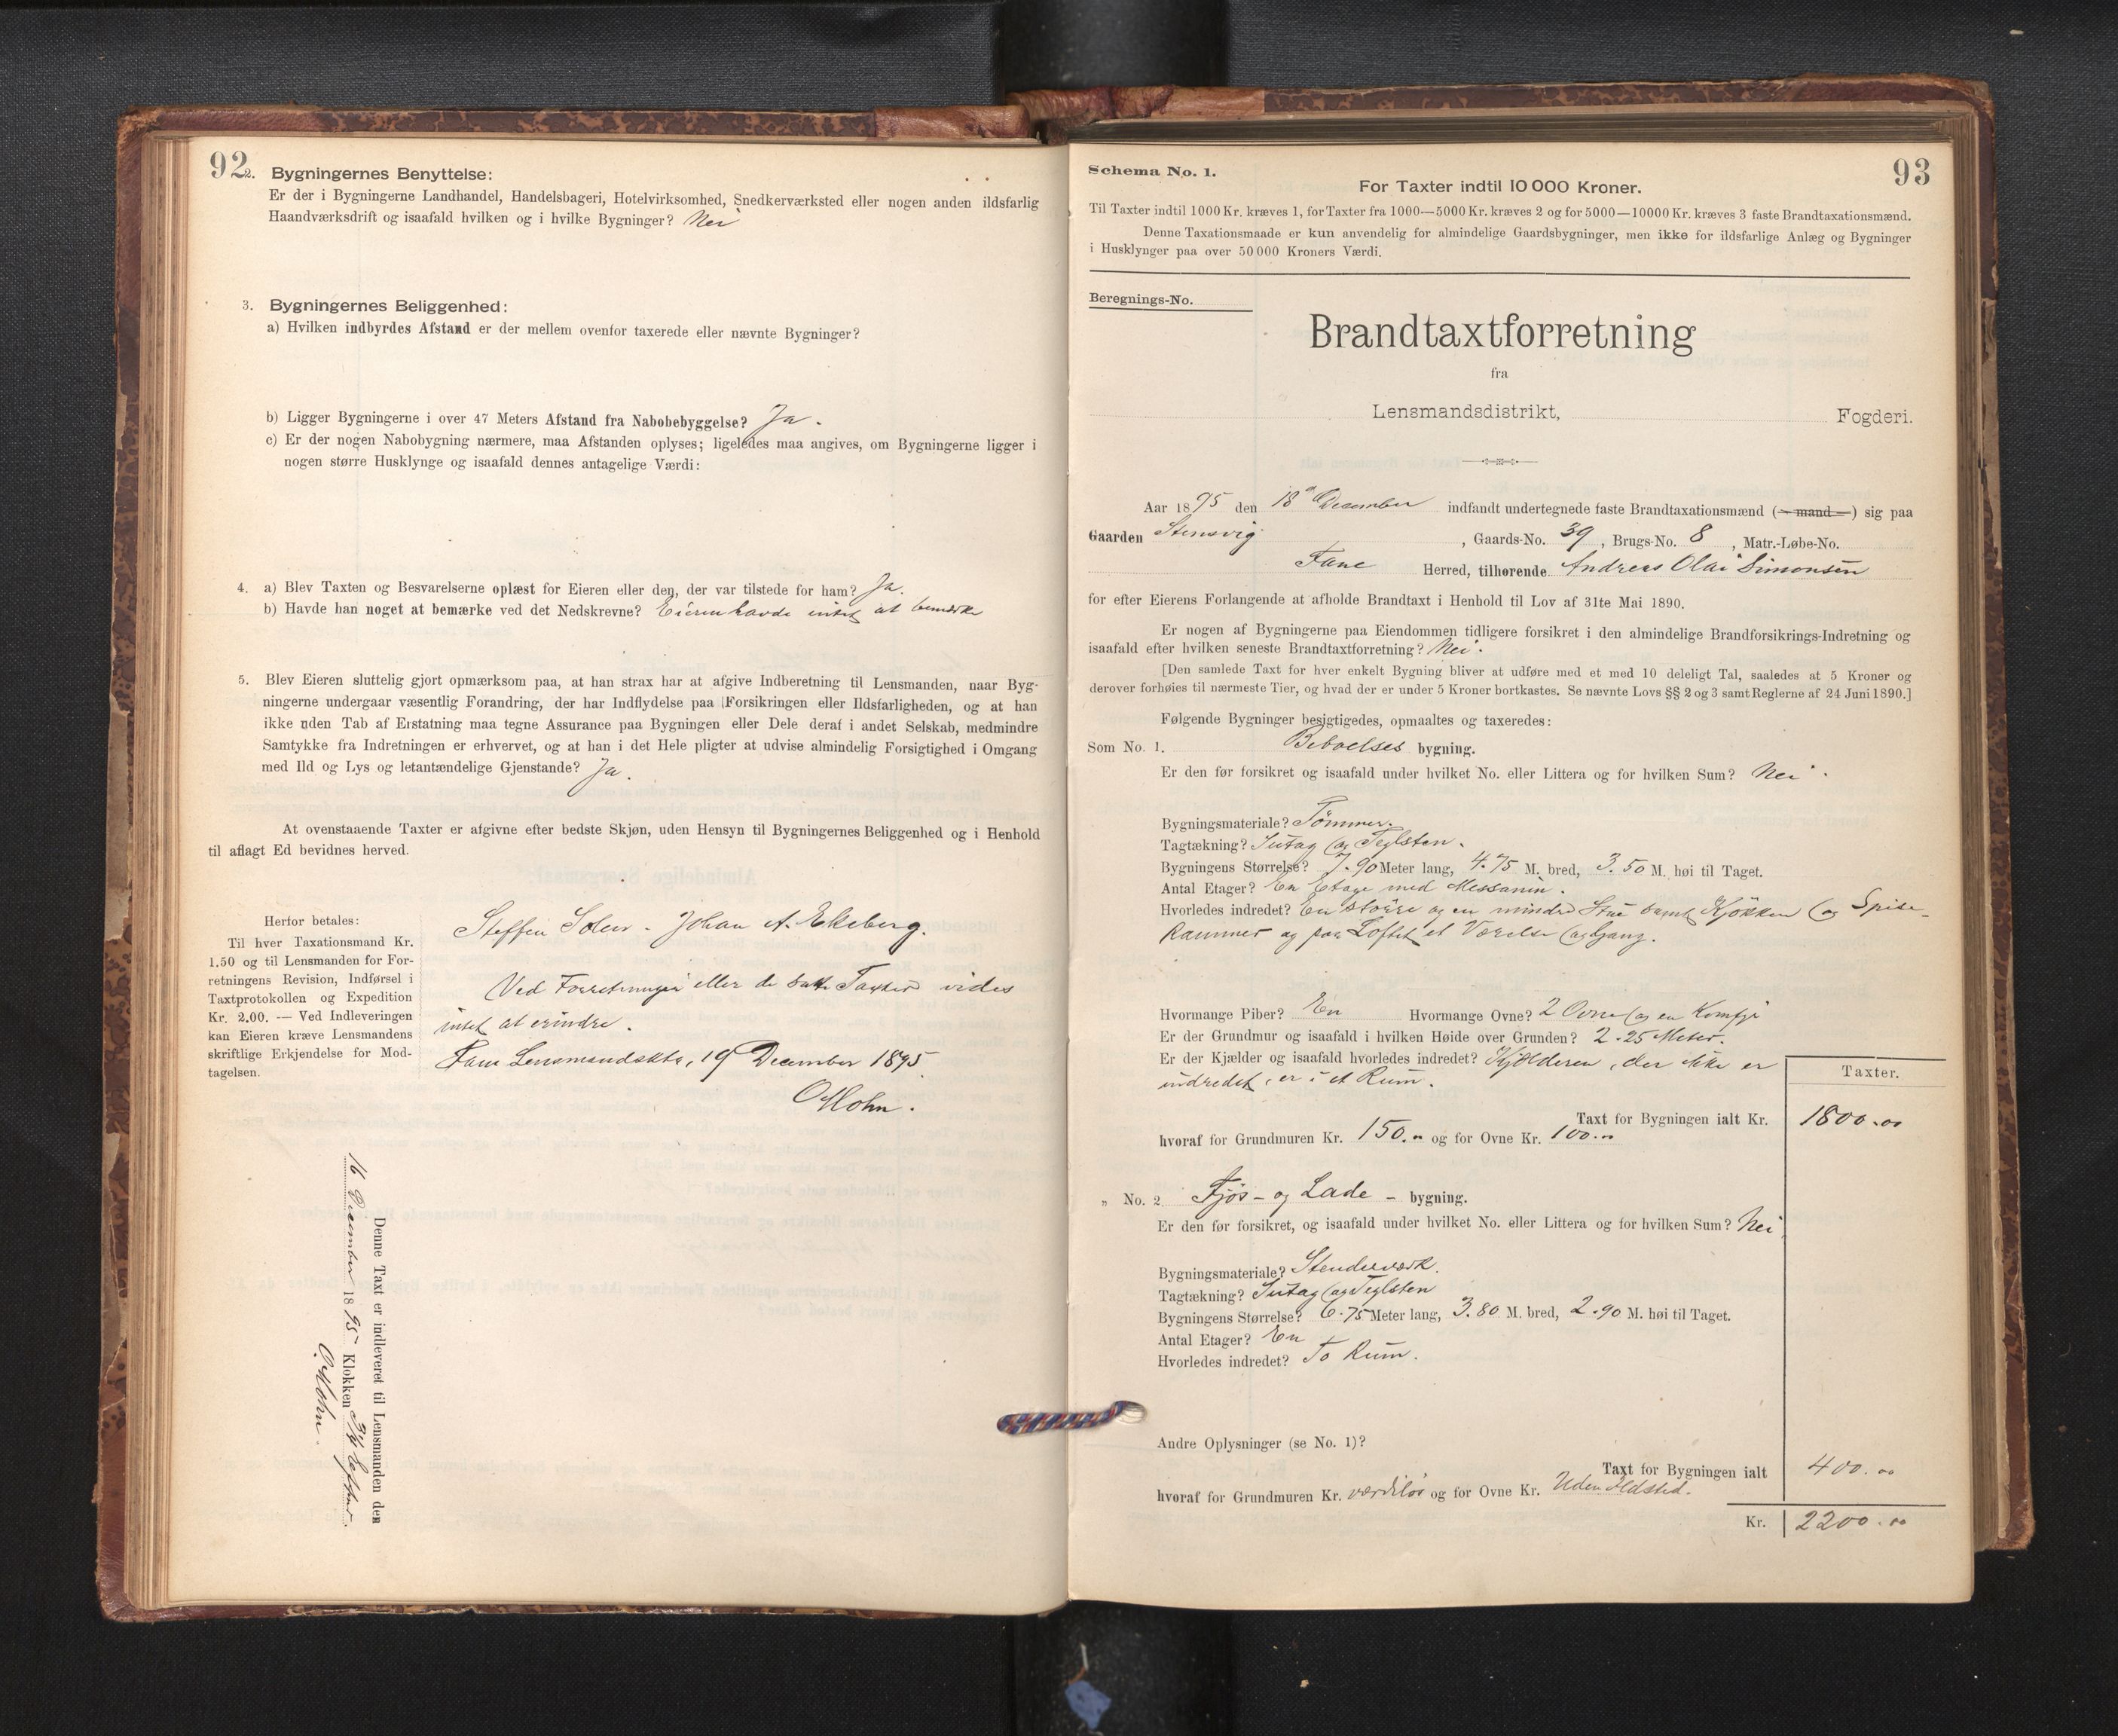 92
2. Bygningernes Benyttelse:
Er der i Bygningerne Landhandel, Handelsbageri, Hotelvirksomhed, Snedkerværksted eller nogen anden ildsfarlig
Haandværksdrift og isaafald hvilken og i hvilke Bygninger? Nei
3. Bygningernes Beliggenhed:
a) Hvilken indbyrdes Afstand er der mellem ovenfor taxerede eller nævnte Bygninger?
b) Ligger Bygningerne i over 47 Meters Afstand fra Nabobebyggelse? Ja.
c) Er der nogen Nabobygning nærmere, maa Afstanden oplyses; ligeledes maa angives, om Bygningerne ligger i
nogen større Husklynge og isaafald dennes antagelige Værdi:
4. a) Blev Taxten og Besvarelserne oplæst for Eieren eller den, der var tilstede for ham? Ja.
b) Havde han noget at bemærke ved det Nedskrevne? Eieren havde intet at bemærke
5. Blev Eieren sluttelig gjort opmærksom paa, at han strax har at afgive Indberetning til Lensmanden, naar Byg-
ningerne undergaar væsentlig Forandring, der har Indflydelse paa Forsikringen eller Ildsfarligheden, og at han
ikke uden Tab af Erstatning maa tegne Assurance paa Bygningen eller Dele deraf i andet Selskab, medmindre
Samtykke fra Indretningen er erhvervet, og at han i det Hele pligter at udvise almindelig Forsigtighed i Omgang
med Ild og Lys og letantændelige Gjenstande? Ja.
At ovenstaaende Taxter er afgivne efter bedste Skjøn, uden Hensyn til Bygningernes Beliggenhed og i Henhold
til aflagt Ed bevidnes herved.
Herfor betales:
Til hver Taxationsmand Kr.
1.50 og til Lensmanden for For-
retningens Revision, Indførsel i
Taxtprotokollen og Expedition
Kr. 2.00. — Ved Indleveringen
kan Eieren kræve Lensmandens
skriftlige Erkjendelse for Mod-
tagelsen.
Steffen Johan A. Ekeberg.
Ved Forretningen eller de satte Taxter vides
intet at erindre.
Fane Lensmandsktr, 19 December 1895
O Mohn.
Denne Taxt er indleveret til Lensmanden den
16 December 1895 Klokken
O Mohn.
93
Schema No. 1.
For Taxter indtil 10 000 Kroner.
Til Taxter indtil 1000 Kr. kræves 1, for Taxter fra 1000—5000 Kr. kræves 2 og for 5000—10000 Kr. kræves 3 faste Brandtaxationsmænd.
Denne Taxationsmaade er kun anvendelig for almindelige Gaardsbygninger, men ikke for ildsfarlige Anlæg og Bygninger
i Husklynger paa over 50 000 Kroners Værdi.
Beregnings-No.
Brandtaxtforretning
fra
Lensmandsdistrikt, Fogderi.
Aar 1895 den 18 December indfandt undertegnede faste Brandtaxationsmænd (mand) sig paa
Gaarden Stensvig, Gaards-No. 39, Brugs-No. 8, Matr.-Løbe-No.
Fane Herred, tilhørende Andreas Olai Simonsen
for efter Eierens Forlangende at afholde Brandtaxt i Henhold til Lov af 31te Mai 1890.
Er nogen af Bygningerne paa Eiendommen tidligere forsikret i den almindelige Brandforsikrings-Indretning og
isaafald efter hvilken seneste Brandtaxtforretning? Nei.
[Den samlede Taxt for hver enkelt Bygning bliver at udføre med et med 10 deleligt Tal, saaledes at 5 Kroner og
derover forhøies til nærmeste Tier, og hvad der er under 5 Kroner bortkastes. Se nævnte Lovs §§ 2 og 3 samt Reglerne af 24 Juni 1890.]
Følgende Bygninger besigtigedes, opmaaltes og taxeredes:
Som No. 1. Beboelses bygning.
Er den før forsikret og isaafald under hvilket No. eller Littera og for hvilken Sum? Nei.
Bygningsmateriale? Tömmer.
Tagtækning? Sutag og Teglsten.
Bygningens Størrelse? 7.90 Meter lang, 4.75 M. bred, 3.50 M. høi til Taget.
Antal Etager? En Etage med Messanin.
Hvorledes indredet? En större og en mindre Stue samt Kjökken og Spise-
kammer og paa Loftet et Værelse og Gang.
Hvormange Piber? En Hvormange Ovne? 2 Ovne og en Komfyr
Er der Grundmur og isaafald i hvilken Høide over Grunden? 2.25 Meter.
Er der Kjælder og isaafald hvorledes indredet? Kjælderen, der ikke er
indredet, er i et Rum.
Taxter.
Taxt for Bygningen ialt Kr. 1800.00
hvoraf for Grundmuren Kr. 150.„ og for Ovne Kr. 100.„
„ No. 2. Fjös- og Lade - bygning.
Er den før forsikret, og isaafald under hvilket No. eller Littera og for hvilken Sum? Nei
Bygningsmateriale? Stenderværk.
Tagtækning? Sutag og Teglsten
Bygningens Størrelse? 6.75 Meter lang, 3.80 M. bred, 2.90 M. høi til Taget.
Antal Etager? En
Hvorledes indredet? To Rum.
Andre Oplysninger (se No. 1)?
Taxt for Bygningen ialt 400.00
hvoraf for Grundmuren Kr. værdilös og for Ovne Kr. Uden Ildsted.
Kr. 2200.00